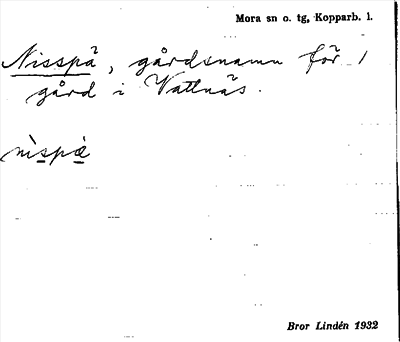 Mora sn o. tg, Kopparb. l.
Nisspä, gårdsnamn för 1
gård i Vattnäs.
nìspæ̀
Bror Lindén 1932